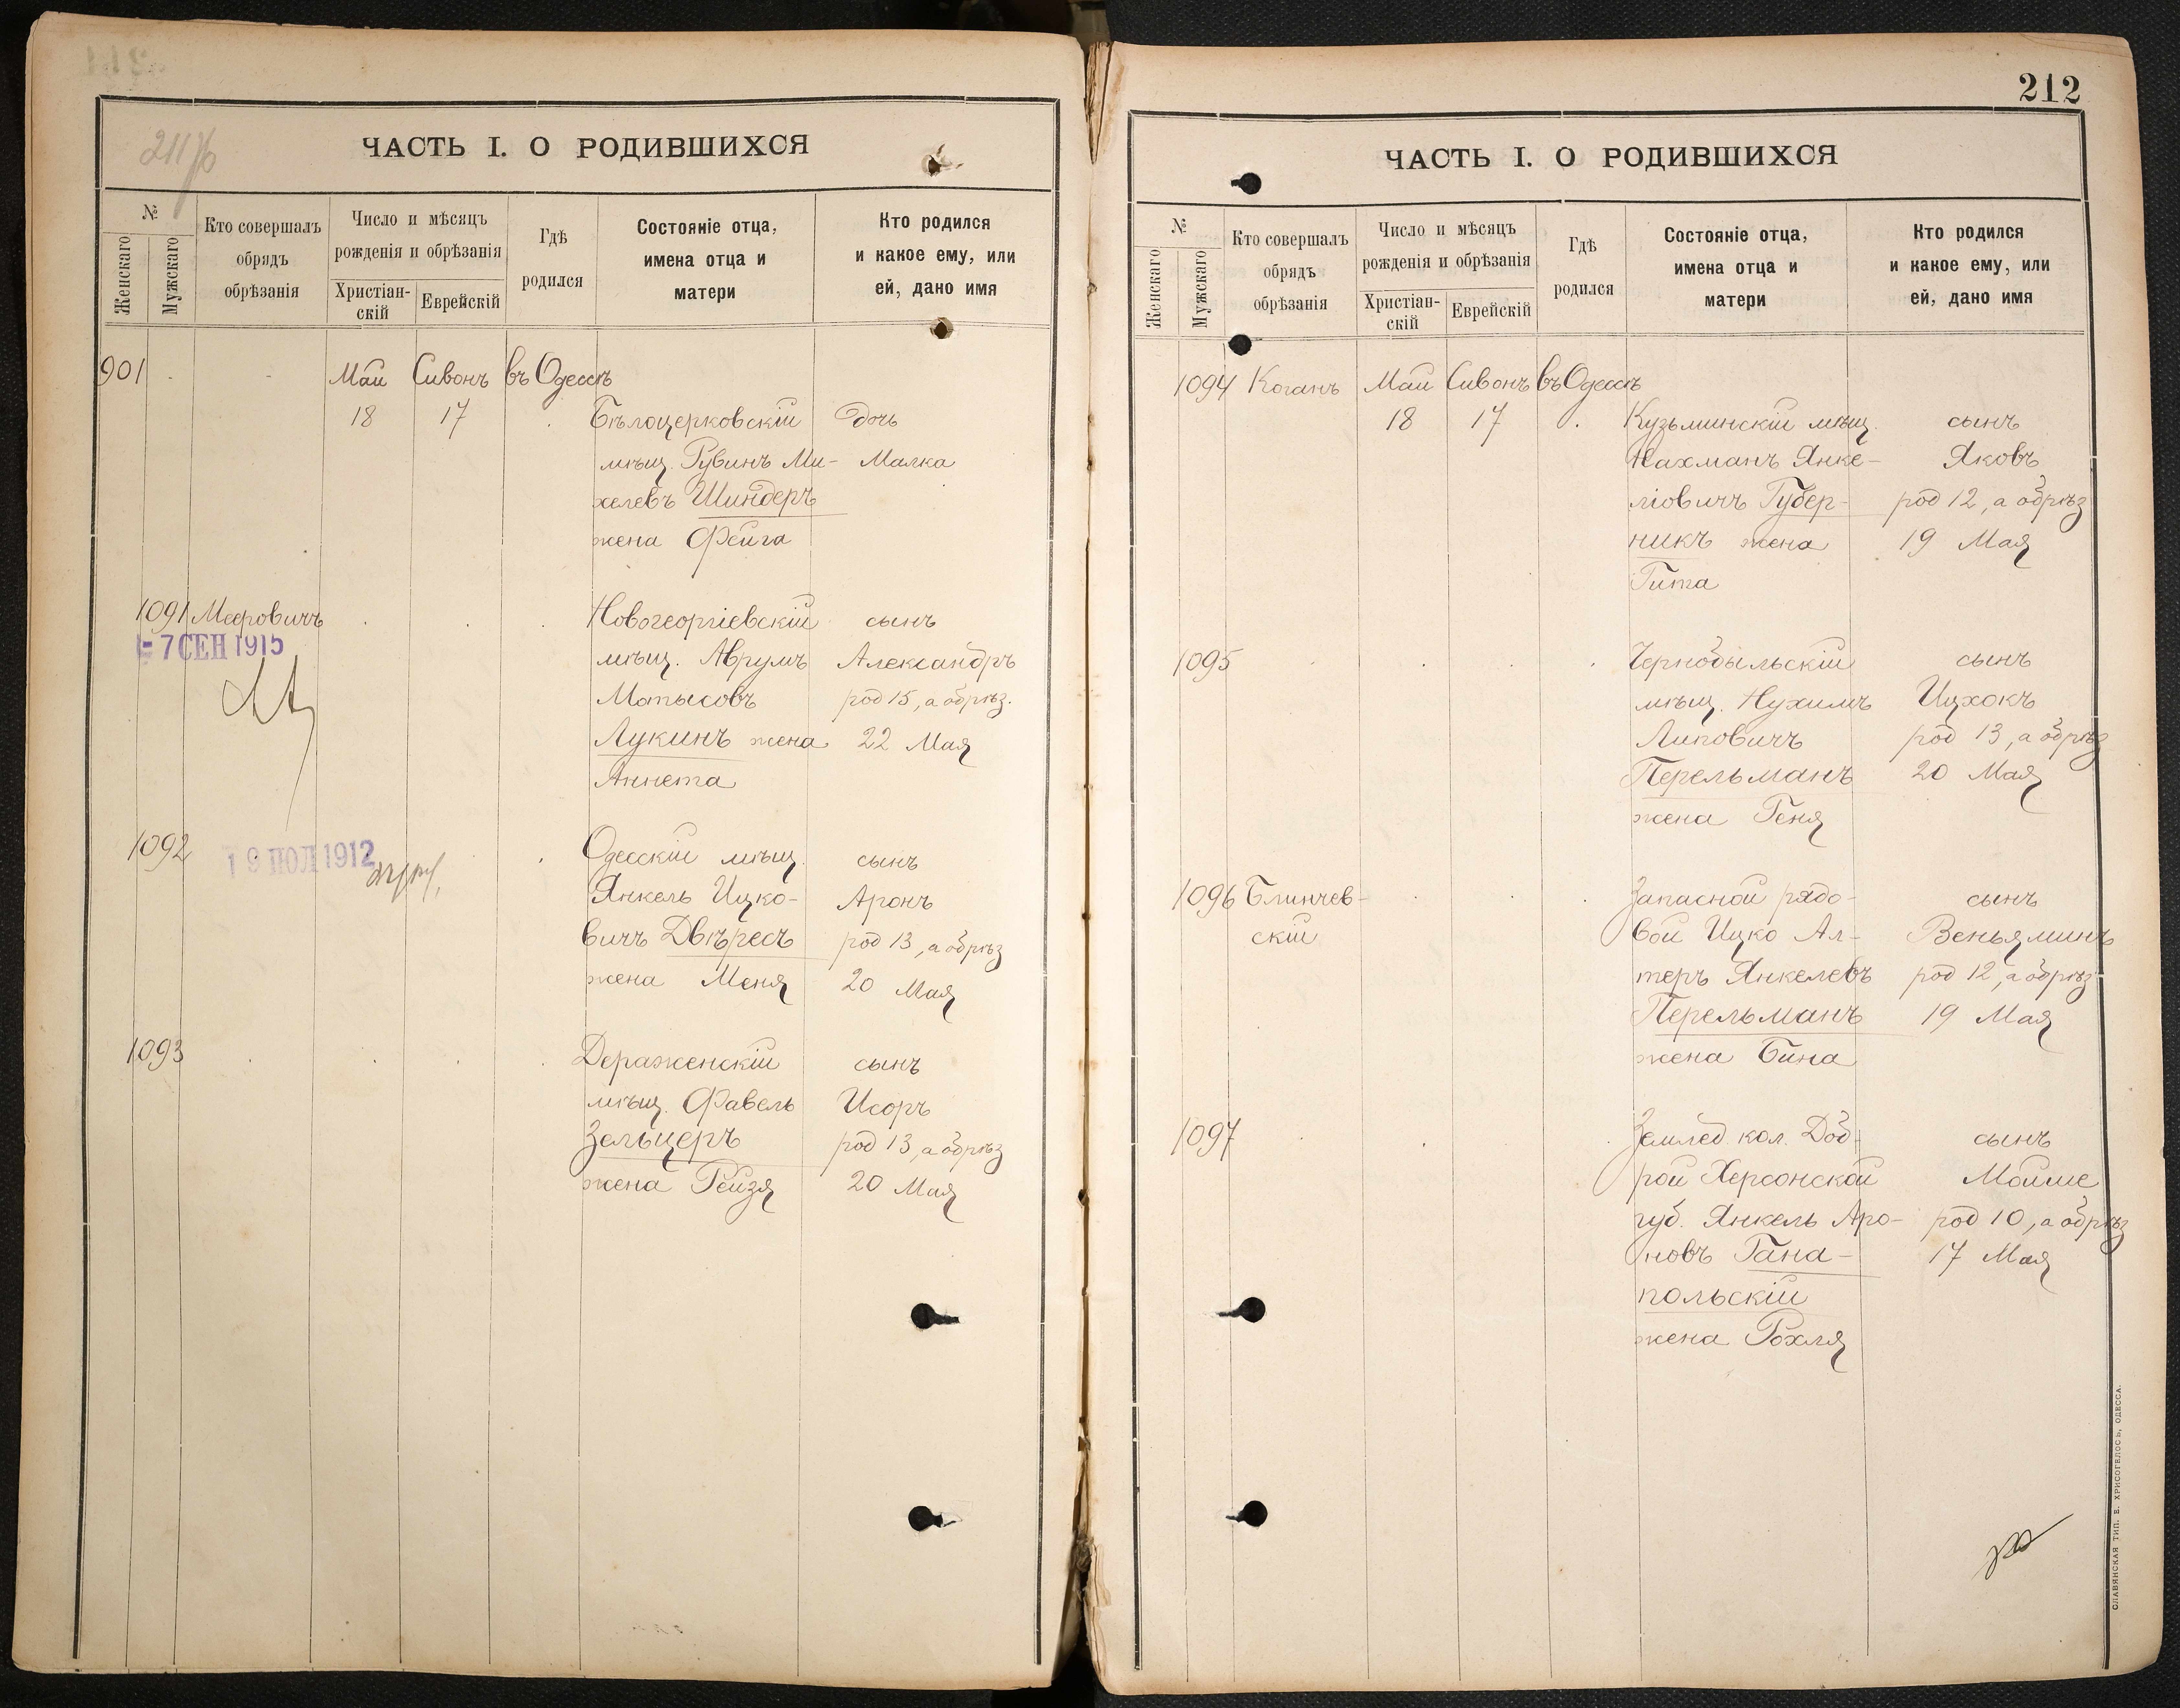 211 об
ЧАСТЬ I. О РОДИВШИХСЯ
№
Женскаго
Мужскаго
Кто совершалъ
обрядъ
обрѣзанія
Число и мѣсяцъ
рожденія и обрѣзанія
Христіан-
скій
Еврейскій
Гдѣ
родился
Состояніе отца,
имена отца и
матери
Кто родился
и какое ему, или
ей, дано имя
901 Май Сивонъ въ Одессѣ
18 17 Бѣлоцерковскій дочь
мѣщ. Рувинъ Ми- Малка
хелевъ Шиндеръ
жена Фейга
1091 Мееровичъ Новогеоргіевскій сынъ
- 7 СЕН 1915
мѣщ. Аврумъ Александръ
Матысовъ род 15, а обрѣз.
Лукинъ жена 22 Мая
Аннета
1092 Одесскій мѣщ. сынъ
19 ІЮЛ 1912
Янкель Ицко- Аронъ
вичъ Двѣресъ род 13, а обрѣз
жена Меня 20 Мая
1093 Деражненскій сынъ
мѣщ. Фавель Исоръ
Зельцеръ род 13, а обрѣз
жена Рейзя 20 Мая
212
ЧАСТЬ I. О РОДИВШИХСЯ
№
Женскаго
Мужскаго
Кто совершалъ
обрядъ
обрѣзанія
Число и мѣсяцъ
рожденія и обрѣзанія
Христіан-
скій
Еврейскій
Гдѣ
родился
Состояніе отца,
имена отца и
матери
Кто родился
и какое ему, или
ей, дано имя
1094 Коганъ Май Сивонъ въ Одессѣ
18 17 Кузьминскій мѣщ. сынъ
Нахманъ Янке- Яковъ
ліовичъ Губер- род 12, а обрѣз
никъ жена 19 Мая
Гита
1095 Чернобыльскій сынъ
мѣщ. Нухимъ Ицхокъ
Липовичъ род 13, а обрѣз
Перельманъ 20 Мая
жена Геня
1096 Блинчев- Запасной рядо- сынъ
скій вой Ицко Ал- Веньяминъ
теръ Янкелевъ род 12, а обрѣз
Перельманъ 19 Мая
жена Бина
1097 Землед. кол. Доб- сынъ
рой Херсонской Мойше
губ. Янкель Аро- род 10, а обрѣз
новъ Гана- 17 Мая
польскій
жена Рохля
СЛАВЯНСКАЯ ТИП. Е. ХРИСОГЕЛОСЪ, ОДЕССА.